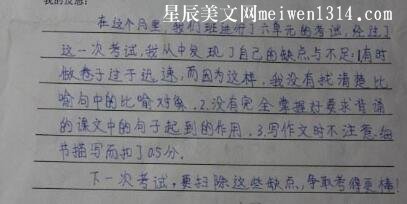 我的反思:
星辰美文网-meiwen1314.com
在这个周里,我们班进行了六单元的考试,经过了
这一次考试,我从中发现了自己的缺点与不足:1.有时
做卷子过于迅速,而因为这样,我没有找清楚比
喻句中的比喻对象。2.没有完全掌握好要求背诵
的课文中的句子起到的作用。3.写作文时不注意细
节描写而扣了0.5分。
下一次考试,要扫除这些缺点,争取考得更棒!